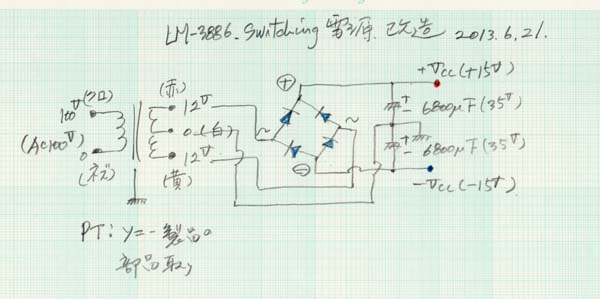 LM-3886. Switching 電源 改造 2013.6.21.
(クロ)
100V
(AC100V)
0
(赤)
12V
0 (白)
12V
(黄)
~
+
~
−
+Vcc (+15V)
+
− 6800μF (35V)
+
− 6800μF (35V)
−Vcc (−15V)
PT: ソニー製品の
部品取り